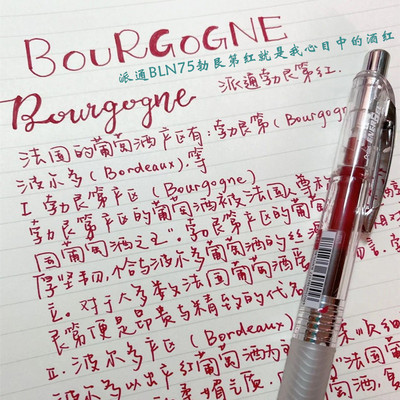 BOURGOGNE
派通BLN75勃艮第红就是我心目中的酒红
Bourgogne
派通勃艮第红.
法国的葡萄酒产区有:勃艮第(Bourgogn
波尔多(Bordeaux).等
I. 勃艮第产区(Bourgogne)
勃艮第产区的葡萄酒被法国人尊称
国葡萄酒之王".勃艮第产区的葡萄
厚坚韧,恰与波尔多葡萄酒的丝
立。对于大多数法国葡萄酒 言,勃
艮第便是昂贵与精致的代名
II. 波尔多产区(Bordeaux)
波尔多以出产红葡萄酒为 法国葡
ENERG